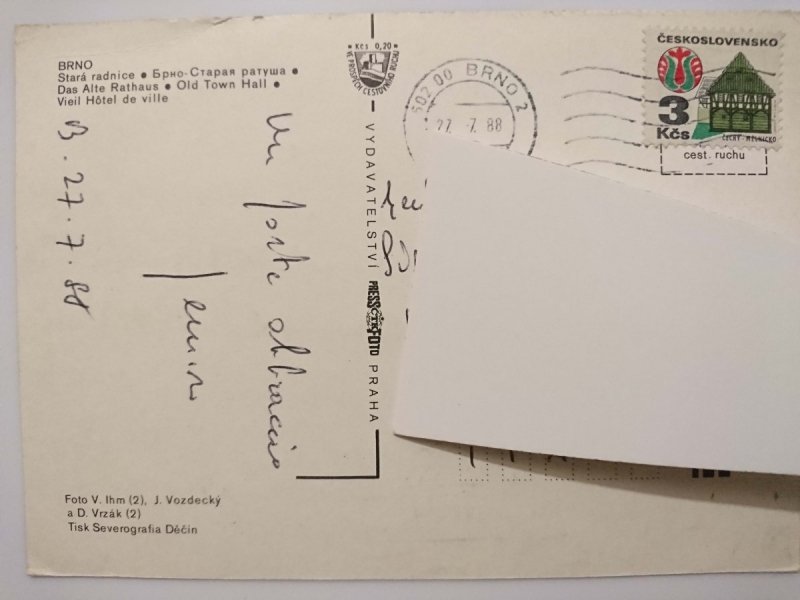 BRNO
Stará radnice • Брно-Старая ратуша •
Das Alte Rathaus • Old Town Hall •
Vieil Hôtel de ville
B. 27.7.88
Un forte abbraccio
Kčs 0,20
VE PROSPĚCH CESTOVNÍHO RUCHU
VYDAVATELSTVÍ PRESSFOTO PRAHA
ČTK
602 00 BRNO 2
27. 7. 88
ČESKOSLOVENSKO
3
Kčs
ČECHY - MĚLNICKO
cest. ruchu
Foto V. Ihm (2), J. Vozdecký
a D. Vrzák (2)
Tisk Severografia Děčín